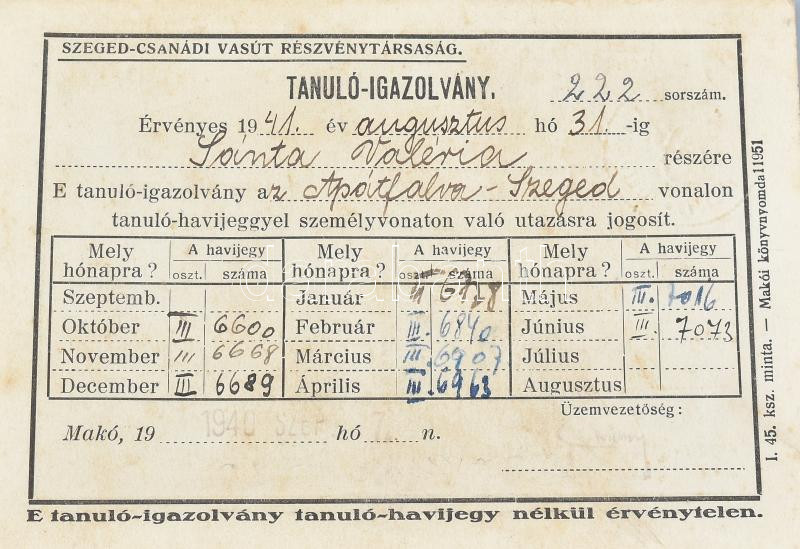 SZEGED-CSANÁDI VASÚT RÉSZVÉNYTÁRSASÁG.
TANULÓ-IGAZOLVÁNY. 222 sorszám.
Érvényes 1941. év augusztus hó 31.-ig
Sánta Valéria részére
E tanuló-igazolvány az Apátfalva-Szeged vonalon
tanuló-havijeggyel személyvonaton való utazásra jogosít.
Mely hónapra? A havijegy oszt. száma Mely hónapra? A havijegy oszt. száma Mely hónapra? A havijegy oszt. száma
Szeptemb. Január III 6728 Május III. 7016
Október III 6600 Február III. 6840 Június III. 7073
November III 6668 Március III. 6907 Július
December III 6689 Április III. 6963 Augusztus
Üzemvezetőség:
Makó, 19 1940 SZEP. hó n.
E tanuló-igazolvány tanuló-havijegy nélkül érvénytelen.
I. 45. ksz. minta. — Makói könyvnyomda 11951